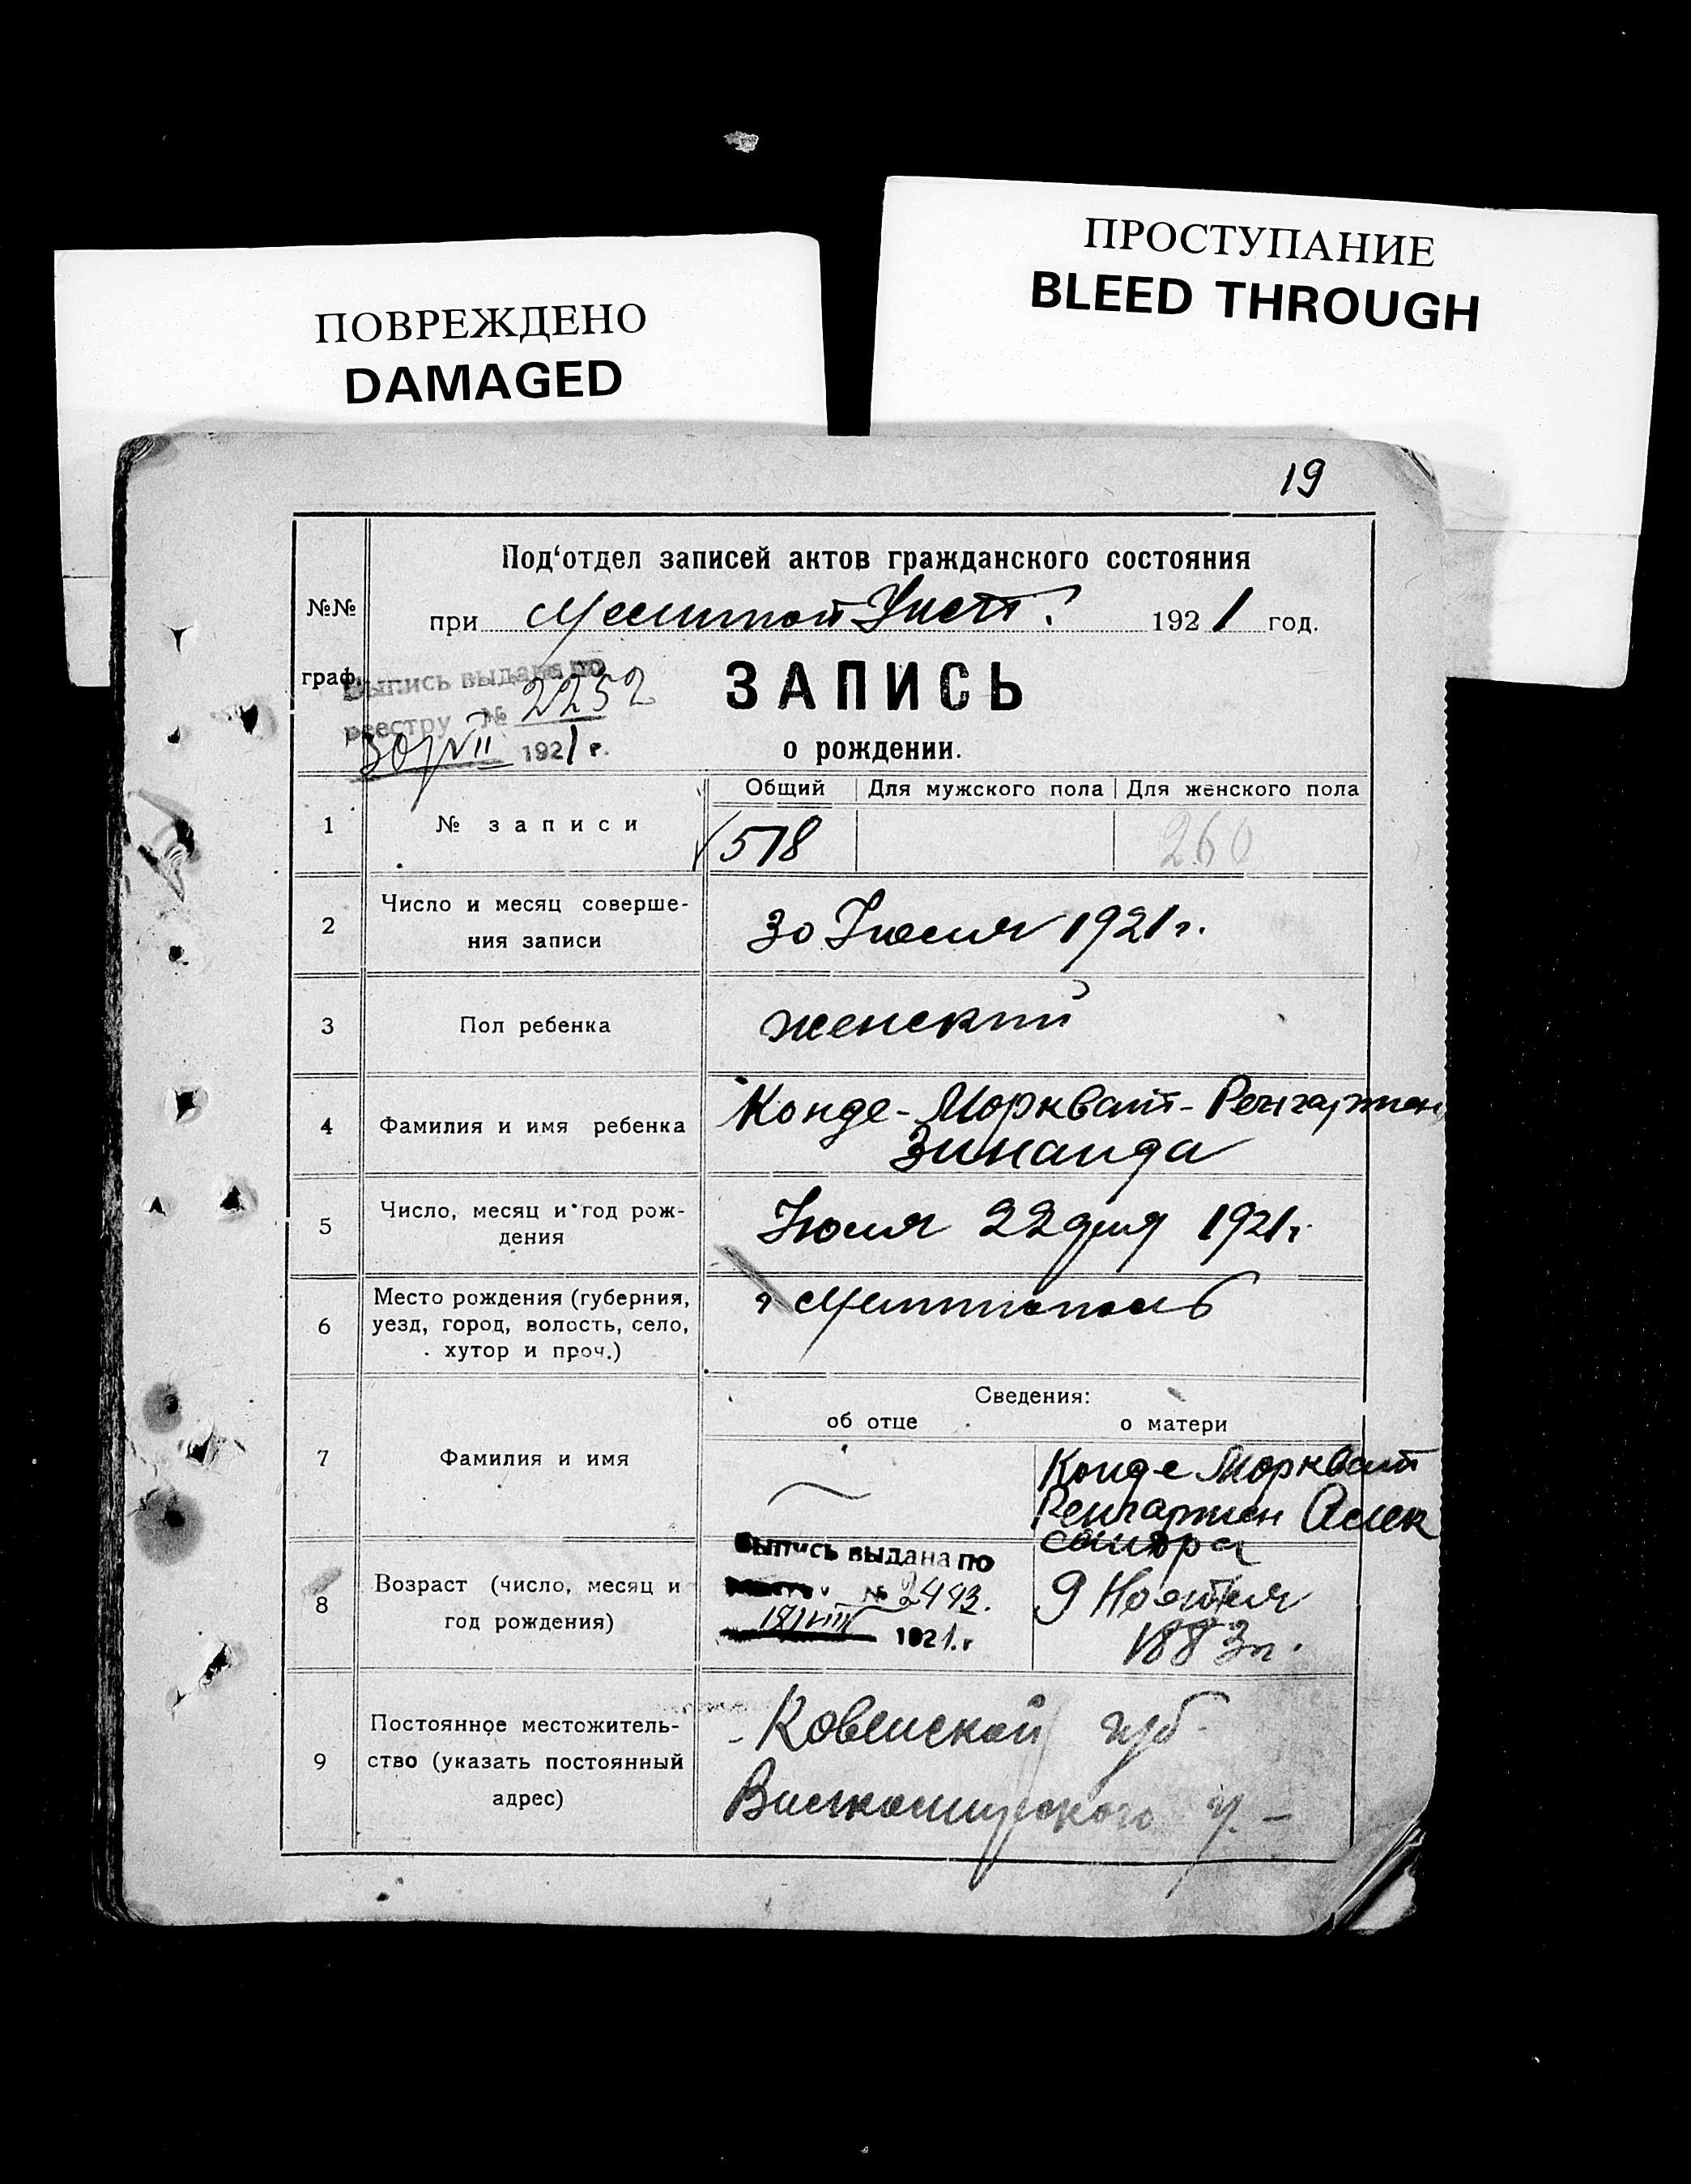 ПОВРЕЖДЕНО
DAMAGED
ПРОСТУПАНИЕ
BLEED THROUGH
19
Под‘отдел записей актов гражданского состояния
№№
граф.
при 1921 год.
Выпись выдана по
реестру № 2252
30/VII 1921 г.
ЗАПИСЬ
о рождении.
Общий Для мужского пола Для женского пола
1 № записи 518 260
2 Число и месяц соверше-
ния записи
30 Июля 1921 г.
3 Пол ребенка женский
4 Фамилия и имя ребенка
Конде-Морквайт-Ренгартен
Зинаида
5 Число, месяц и год рож-
дения
Июля 22 дня 1921 г.
6 Место рождения (губерния,
уезд, город, волость, село,
хутор и проч.)
г Мелитополь
Сведения:
об отце о матери
7 Фамилия и имя
Конде Морквайт
Ренгартен Алек
сандра
8 Возраст (число, месяц и
год рождения)
Выпись выдана по
№ 2443.
1921 г
9 Ноября
1883 г.
9 Постоянное местожитель-
ство (указать постоянный
адрес)
Ковенской губ
Вилкомирского у. -